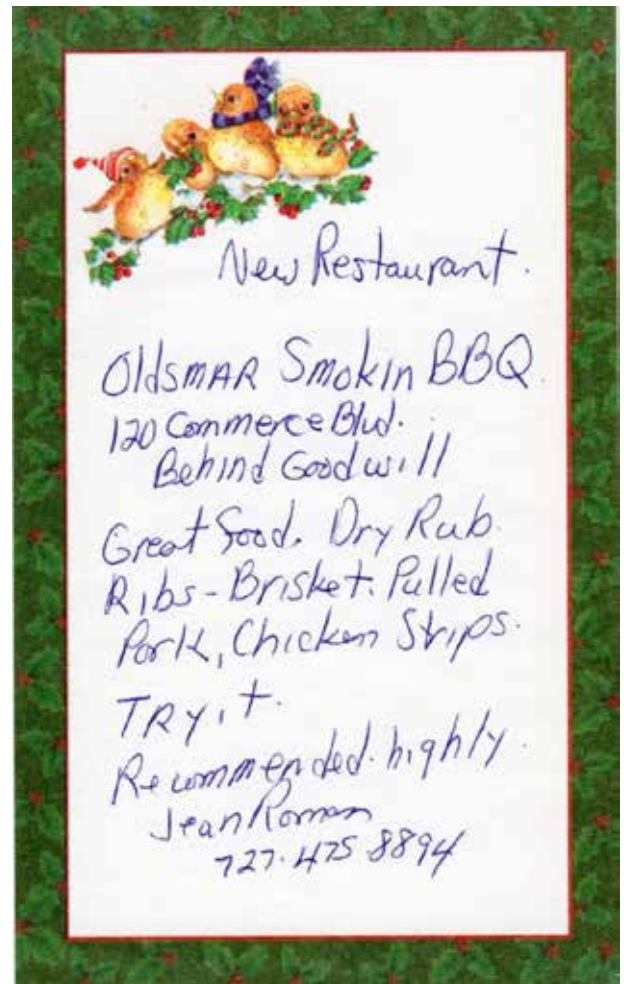 New Restaurant.
Oldsmar Smokin BBQ.
120 Commerce Blvd.
Behind Goodwill
Great food. Dry Rub.
Ribs - Brisket. Pulled
Pork, Chicken Strips.
Try it.
Recommended highly.
Jean Roman
727.475.8894